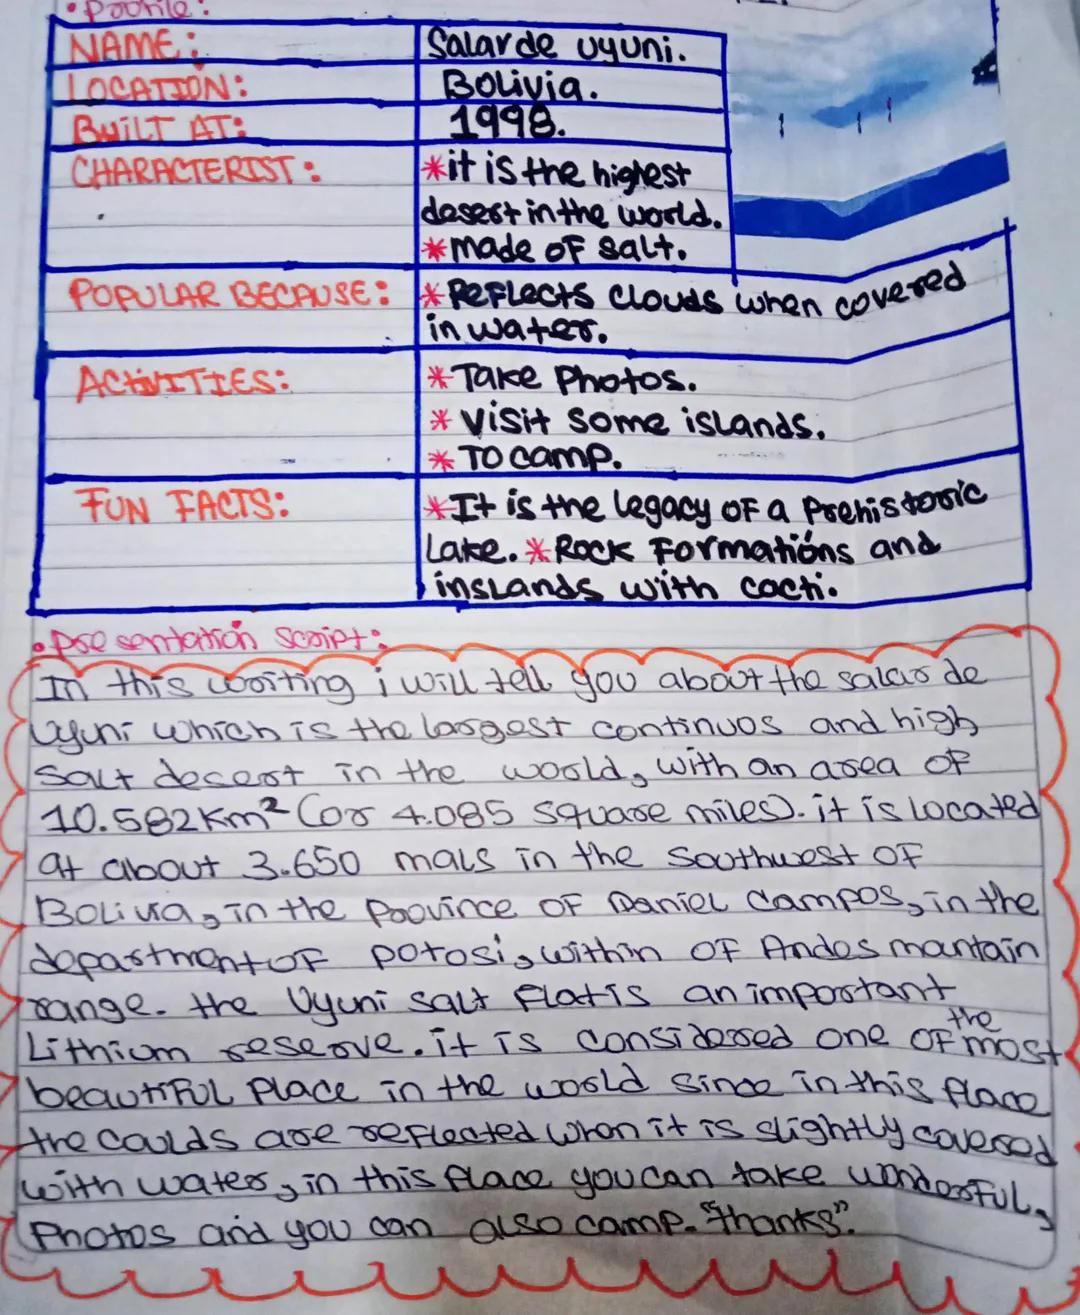 • Profile:
NAME: Salar de uyuni.
LOCATION: Bolivia.
BUILT AT: 1998.
CHARACTERIST: *it is the highest
desert in the world.
*made of salt.
POPULAR BECAUSE: *Reflects clouds when covered
in water.
ACTIVITIES: *Take Photos.
* Visit some islands.
* To camp.
FUN FACTS: *It is the legacy of a Prehistoric
Lake. *Rock Formatións and
inslands with cacti.
• Presentation script:
In this writing i will tell you about the salar de
Uyuni which is the largest continuos and high
salt desert in the world, with an area of
10.582Km² (or 4.085 square miles). it is located
at about 3.650 mals in the Southwest of
Bolivia, in the Province of Daniel Campos, in the
department of potosi, within of Andes mantain
range. the Uyuni salt flat is an important
Lithium reserve. it is considered one of the most
beautiful Place in the world since in this place
the coulds are reflected when it is slightly covered
with water, in this place you can take wonderful,
Photos and you can also camp. "thanks".